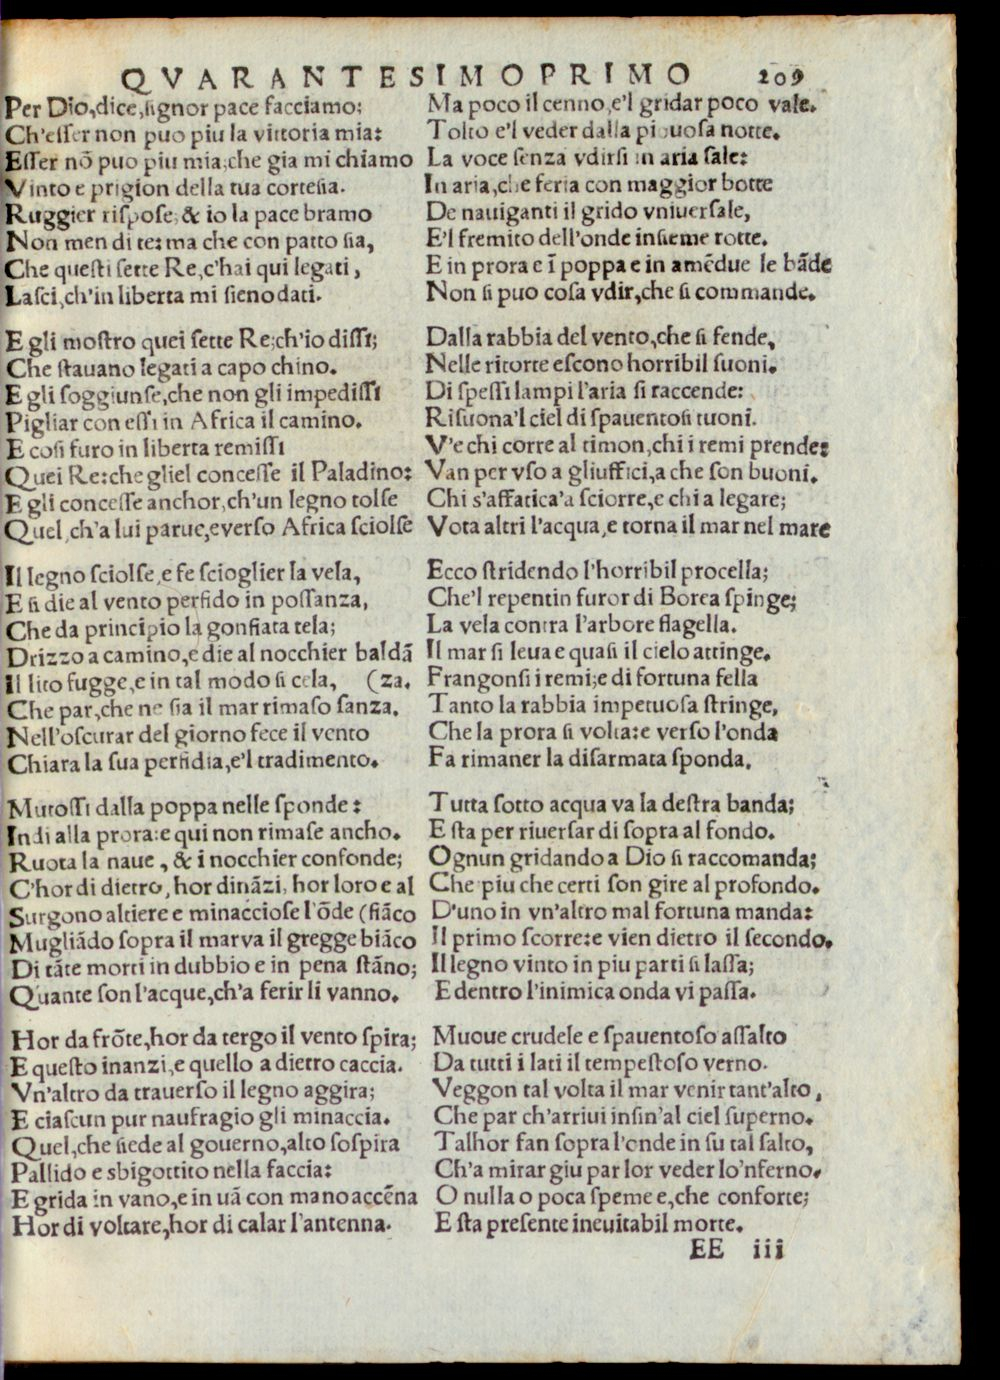 QVARANTESIMOPRIMO 209
Per Dio,dice,signor pace facciamo:
Ch'esser non puo piu la vittoria mia:
Esser nõ puo piu mia;che gia mi chiamo
Vinto e prigion della tua cortesia.
Ruggier rispose; & io la pace bramo
Non men di te:ma che con patto sia,
Che questi sette Re,c'hai qui legati,
Lasci,ch'in liberta mi sieno dati.

E gli mostro quei sette Re;ch'io dissi;
Che stauano legati a capo chino.
E gli soggiunse,che non gli impedissi
Pigliar con essi in Africa il camino.
E cosi furo in liberta remissi
Quei Re:che gliel concesse il Paladino:
E gli concesse anchor,ch'un legno tolse
Quel,ch'a lui parue,everso Africa sciolse

Il legno sciolse,e fe scioglier la vela,
E si die al vento perfido in possanza,
Che da principio la gonfiata tela;
Drizzo a camino,e die al nocchier baldã
Il lito fugge,e in tal modo si cela, (za.
Che par,che ne sia il mar rimaso sanza.
Nell'oscurar del giorno fece il vento
Chiara la sua perfidia,e'l tradimento.

Mutossi dalla poppa nelle sponde:
Indi alla prora:e qui non rimase ancho.
Ruota la naue, & i nocchier confonde;
C'hor di dietro, hor dinãzi, hor loro e al
Surgono altiere e minacciose l'õde (fiãco
Mugliãdo sopra il marva il gregge biãco
Di tãte morti in dubbio e in pena stãno;
Quante son l'acque,ch'a ferir li vanno.

Hor da frõte,hor da tergo il vento spira;
E questo inanzi,e quello a dietro caccia.
Vn'altro da trauerso il legno aggira;
E ciascun pur naufragio gli minaccia.
Quel,che siede al gouerno,alto sospira
Pallido e sbigottito nella faccia:
E grida in vano,e in uã con mano accẽna
Hor di voltare,hor di calar l'antenna.

Ma poco il cenno,e'l gridar poco vale.
Tolto e'l veder dalla piouosa notte.
La voce senza vdirsi in aria sale:
In aria,che feria con maggior botte
De nauiganti il grido vniuersale,
E'l fremito dell'onde insieme rotte.
E in prora e ĩ poppa e in amẽdue le bãde
Non si puo cosa vdir,che si commande.

Dalla rabbia del vento,che si fende,
Nelle ritorte escono horribil suoni.
Di spessi lampi l'aria si raccende:
Risuona'l ciel di spauentosi tuoni.
V'e chi corre al timon,chi i remi prende:
Van per vso a gliuffici,a che son buoni.
Chi s'affatica'a sciorre,e chi a legare;
Vota altri l'acqua,e torna il mar nel mare

Ecco stridendo l'horribil procella;
Che'l repentin furor di Borea spinge;
La vela contra l'arbore flagella.
Il mar si leua e quasi il cielo attinge.
Frangonsi i remi;e di fortuna fella
Tanto la rabbia impetuosa stringe,
Che la prora si volta:e verso l'onda
Fa rimaner la disarmata sponda.

Tutta sotto acqua va la destra banda;
E sta per riuersar di sopra al fondo.
Ognun gridando a Dio si raccomanda;
Che piu che certi son gire al profondo.
D'uno in vn'altro mal fortuna manda:
Il primo scorre:e vien dietro il secondo.
Il legno vinto in piu parti si lassa;
E dentro l'inimica onda vi passa.

Muoue crudele e spauentoso assalto
Da tutti i lati il tempestoso verno.
Veggon tal volta il mar venir tant'alto,
Che par ch'arriui insin'al ciel superno.
Talhor fan sopra l'onde in su tal salto,
Ch'a mirar giu par lor veder lo'nferno.
O nulla o poca speme e,che conforte;
E sta presente ineuitabil morte.
EE iii